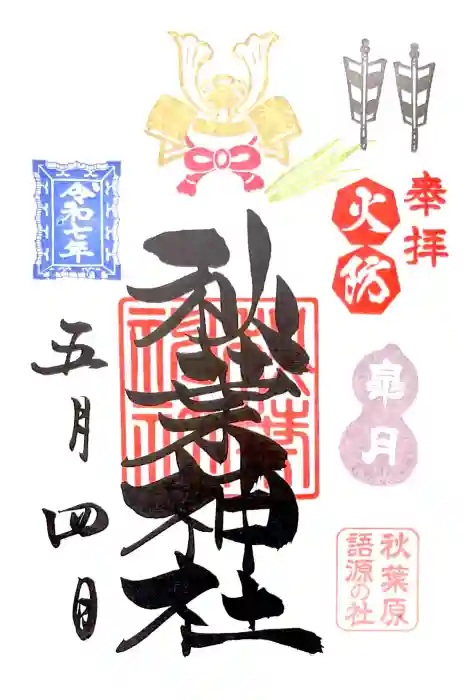 奉拝
火防
皐月
秋葉原
語源の社
秋葉神社
令和七年
五月四日